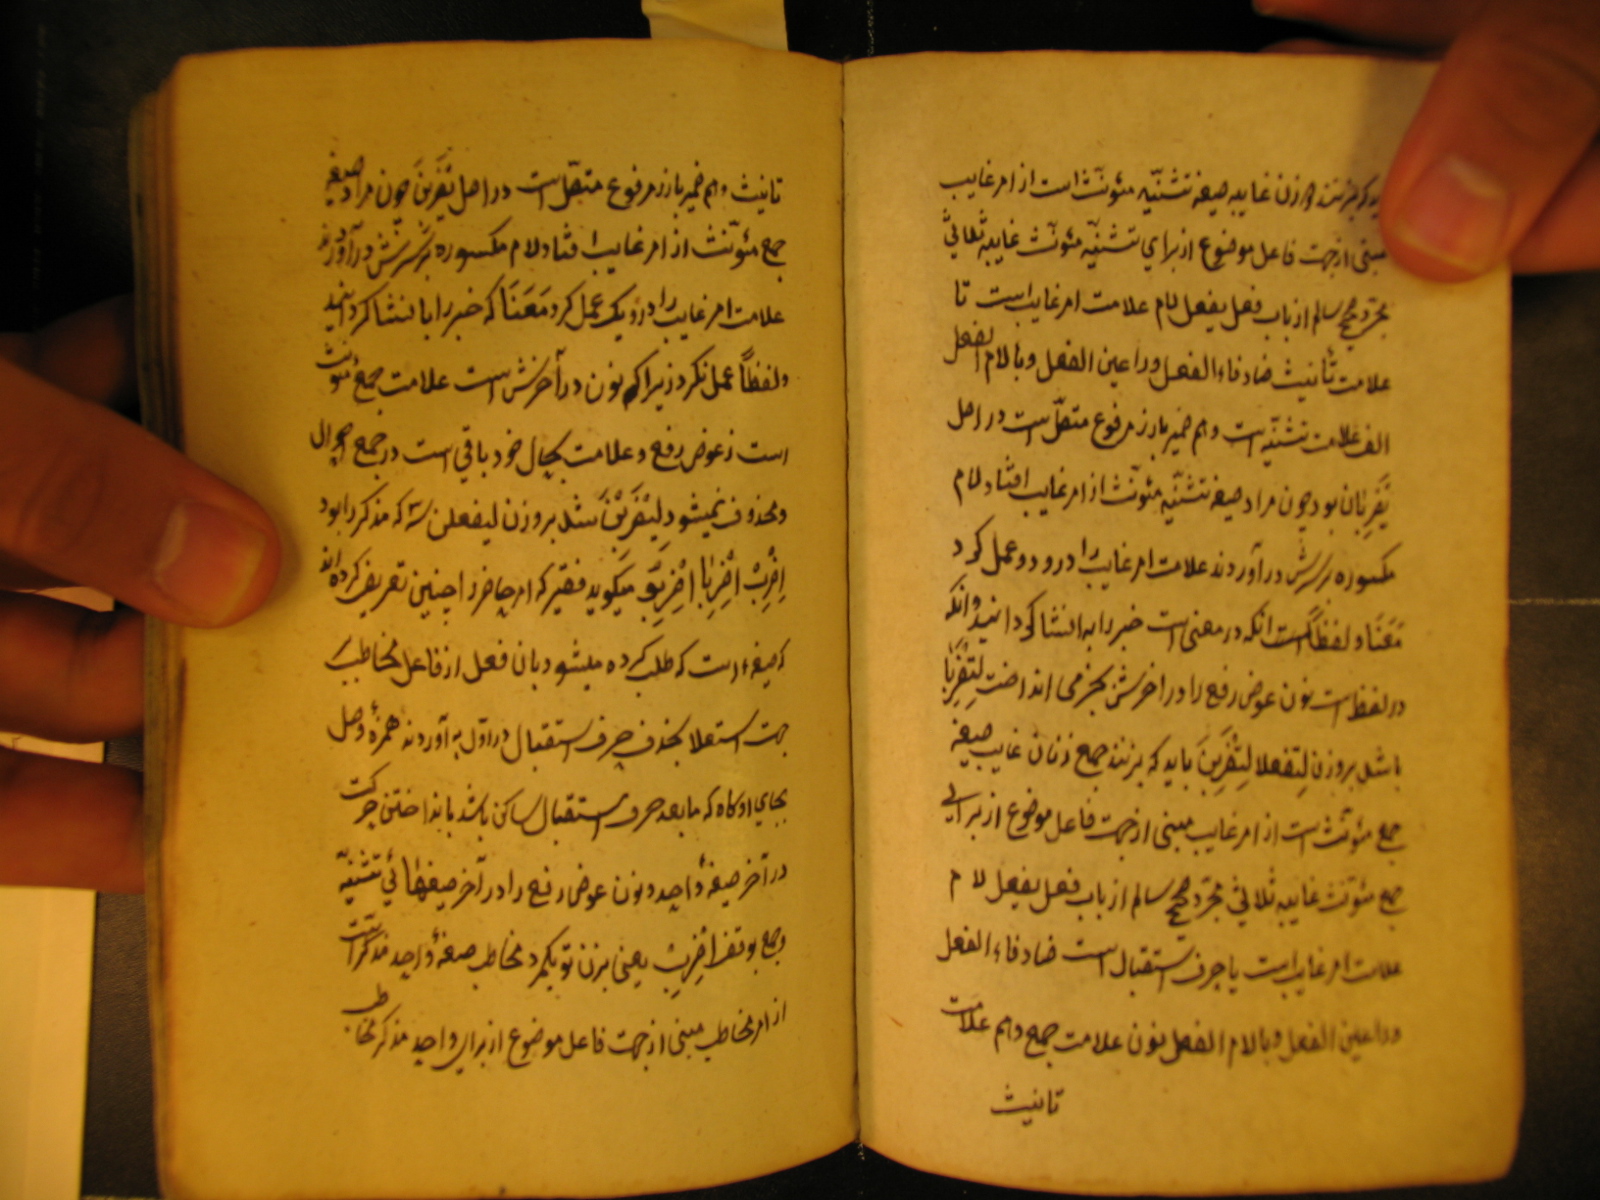 که بزنند دو زن غایبه صیغه تثنیّه مئونّث است از امر غایب
مبنی از جهت فاعل موضوع از برای تثنیّه مئونّث غایبه ثلاثی
مجرّد صحیح سالم از باب فعل یفعل لام علامت امر غایب است تا
علامت تأنیث ضاد فاء الفعل و را عین الفعل و با لام الفعل
الف علامت تثنیّه است و هم ضمیر بارز مرفوع متصّل است در اصل
تَضْرِبَان بود چون مراد صیغه تثنیّه مئونّث از امر غایب افتاد لام
مکسوره بر سرش در آوردند علامت امر غایب را در و دو عمل کرد
مَعَنًا و لفظاً است انکه در معنی است خبر را به انشا کردانید و انکه
در لفظ است نون عوض رفع را در اخرش بجزمی انداخت لِتَضْرِبَا
باشد بر وزن لِتفعلا لِتَضْرِبْنَ باید که بزنند جمع زنان غایب صیغه
جمع مئونّث است از امر غایب مبنی از جهت فاعل موضوع از برای
جمع مئونّث غایبه ثلاثی مجرّد صحیح سالم از باب فعل یفعل لام
علامت امر غایب است یا حرف استقبال است ضاد فاء الفعل
و را عین الفعل و با لام الفعل نون علامت جمع و هم علامت
تانیث
تانیث و هم ضمیر بارز مرفوع متصّل است در اصل یَضْرِبْنَ چون مراد صیغه
جمع مئونّث از امر غایب افتاد لام مکسوره بر سرش در آوردند
علامت امر غایب را در و یک عمل کرد مَعَنَا که خبر را با نشا کردانید
و لفظاً عمل نکرد زیرا که نون در آخرش است علامت جمع مئونث
است نه عوض رفع و علامت بحال خود باقی است در جمع احوال
و محذوف نمیشود لِیَضْرِبْنَ شد بر وزن لیفعلن که مذکر را بود
اِضْرِبْ اِضْرِبَا اِضْرِبُو میکوید فقیر که امر حاضر را چنین تعریف کرده‌اند
که صیغه است که طلب کرده میشود بان فعل از فاعل مخاطب
جهت استعلا بحذف حرف استقبال در اوّل به آوردند همزهٔ وصل
بجای او کاه که ما بعد حرف استقبال ساکن باشد بانداختن حرکت
در آخر صیغهٔ واحد و نون عوض رفع را در آخر صیغهائی تثنیّه
و جمع بوقف اِضْرِبْ یعنی بزن تو یکمرد مخاطب صیغهٔ واحد مذکر است
از امر مخاطب مبنی از جهت فاعل موضوع از برای واحد مذکر مخاطب